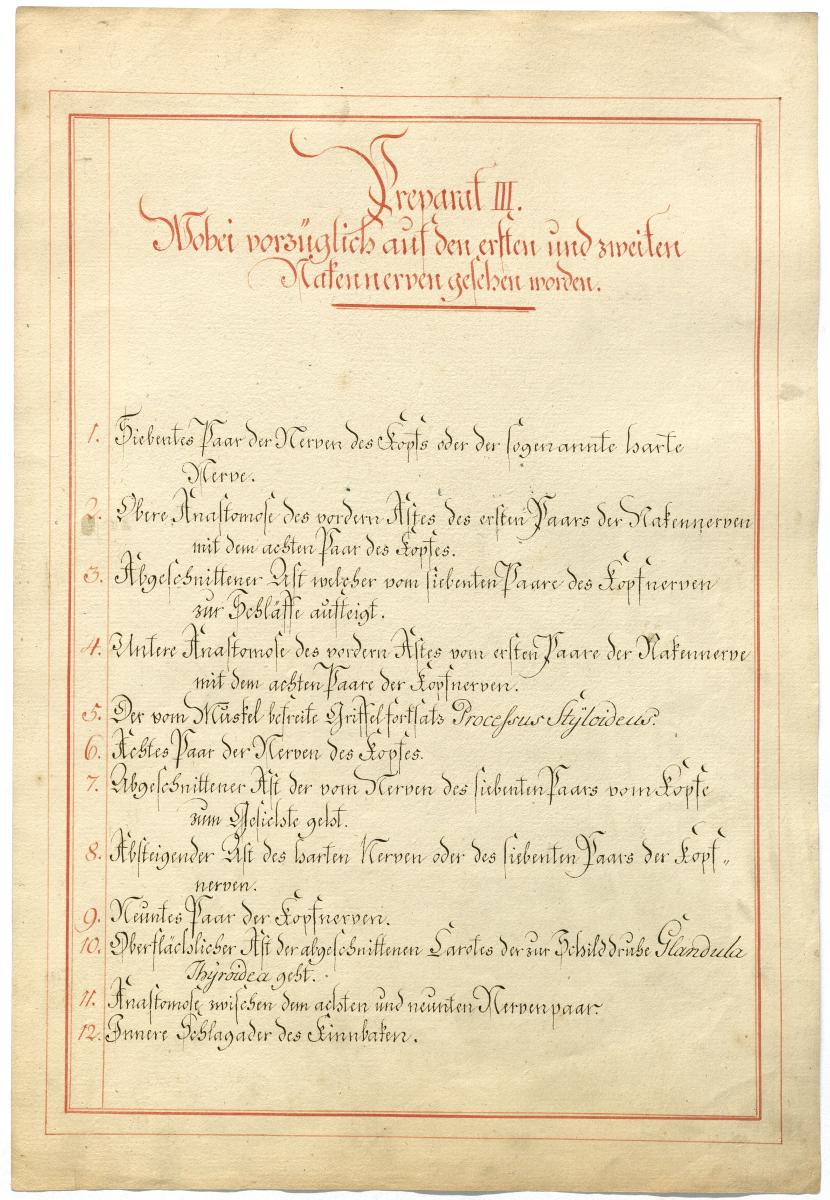 Preparat III.
Wobei vorzüglich auf den ersten und zweiten
Nakennerven gesehen worden.
1. Siebentes Paar der Nerven des Kopfs oder der sogenannte harte
Nerve.
2. Obere Anastomose des vordern Astes des ersten Paars der Nakennerven
mit dem achten Paar des Kopfes.
3. Abgeschnittener Ast welcher vom siebenten Paare des Kopfnerven
zur Schläffe aufsteigt.
4. Untere Anastomose des vordern Astes vom ersten Paare der Nakennerve
mit dem achten Paare der Kopfnerven.
5. Der vom Muskel befreite Griffelfortsatz Processus Stÿloideus.
6. Achtes Paar der Nerven des Kopfes.
7. Abgeschnittener Ast der vom Nerven des siebenten Paars vom Kopfe
zum Gesichte geht.
8. Absteigender Ast des harten Nerven oder des siebenten Paars der Kopf„
nerven.
9. Neuntes Paar der Kopfnerven.
10. Oberflächlicher Ast der abgeschnittenen Carotes der zur Schilddruhe Glandula
Thÿroidea geht.
11. Anastomose zwischen dem achten und neunten Nervenpaar.
12. Innere Schlagader des Kinnbaken.